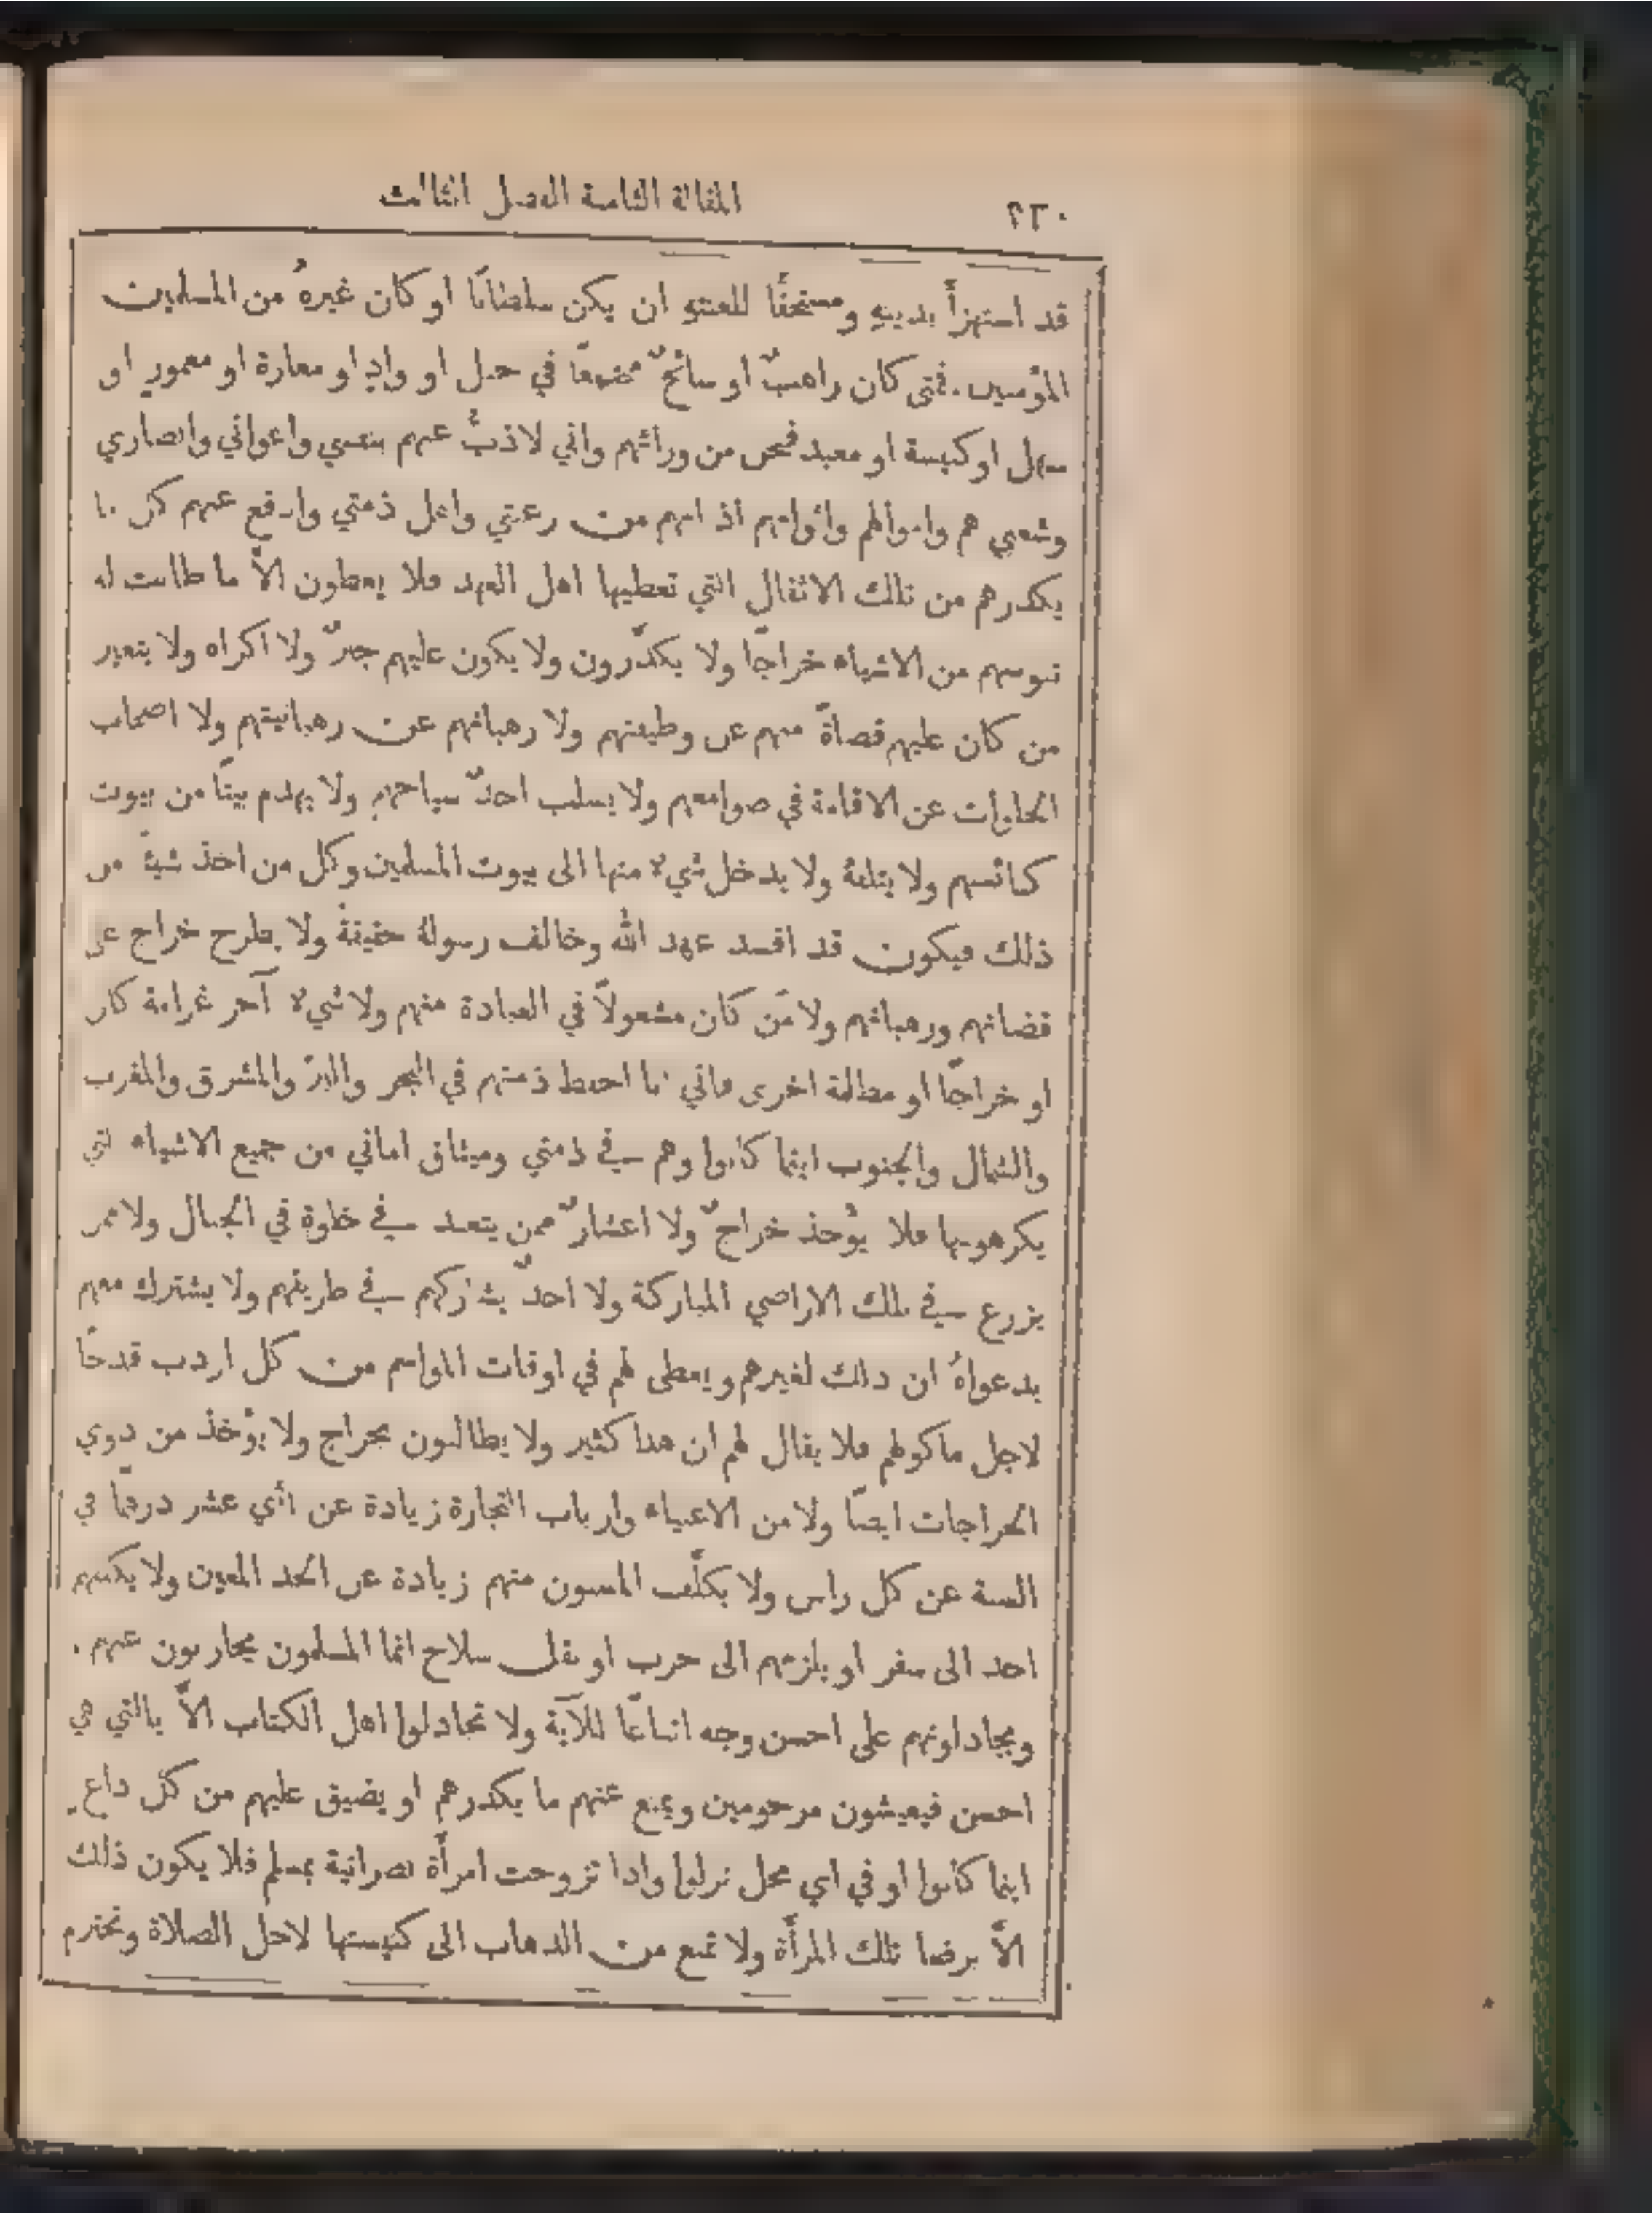 ٢٢٠ المقالة الثامنة الفصل الثالث
قد استهزأ بدينهِ ومستحقًا للعنتهِ ان يكن سلطانًا او كان غيرهُ من المسلمين
المؤمنين. فمتى كان راهبٌ او سائحٌ مجتمعًا في جبل او وادٍ او مغارة او معمورٍ او
سهل او كنيسة او معبد فنحن من ورائهم واني لاذبُّ عنهم بنفسي واعواني وانصاري
وشعبي هم واموالهم واثوابهم اذ انهم من رعيتي واهل ذمتي وارفع عنهم كل ما
يكدرهم من تلك الاثقال التي تعطيها اهل العهد فلا يعطون الاَّ ما طابت له
نفوسهم من الاشياء خراجًا ولا يكدَّرون ولا يكون عليهم جبرٌ ولا اكراه ولا يتغير
من كان عليهم قضاةً منهم عن وظيفتهم ولا رهبانهم عن رهبانيتهم ولا اصحاب
الخلوات عن الاقامة في صوامعهم ولا يسلب احدٌ سياحهم ولا يهدم بيتًا من بيوت
كنائسهم ولا يتلفهُ ولا يدخل شيء منها الى بيوت المسلمين وكل من اخذ شيئًا من
ذلك فيكون قد افسد عهد الله وخالف رسولهُ حقيقةً ولا يطرح خراج على
قضاتهم ورهبانهم ولا مَن كان مشغولاً في العبادة منهم ولا شيء آخر غرامة كان
او خراجًا او مظلمة اخرى فاني انا احفظ ذمتهم في البحر والبرّ والمشرق والمغرب
والشمال والجنوب اينما كانوا وهم في ذمتي وميثاق اماني من جميع الاشياء التي
يكرهونها فلا يؤخذ خراجٌ ولا اعشارٌ ممن يتعبد في خلوة في الجبال ولا ممن
يزرع في تلك الاراضي المباركة ولا احدٌ يشاركهم في طريقهم ولا يشترك معهم
بدعواهُ ان ذلك لغيرهم ويعطى لهم في اوقات المواسم من كل اردب قدحًا
لاجل ماكولهم فلا يقال لهم ان هذا كثير ولا يطالبون بخراج ولا يؤخذ من ذوي
الخراجات ايضًا ولا من الاغنياء وارباب التجارة زيادة عن اثني عشر درهمًا في
السنة عن كل راس ولا يكلَّف المسنون منهم زيادة عن الحد المعين ولا
احد الى سفر او يلزمهم الى حرب او نقل سلاح انما المسلمون يحاربون عنهم.
ويجادلونهم على احسن وجه اتباعًا للآية ولا تجادلوا اهل الكتاب الاَّ بالتي هي
احسن فيعيشون مرحومين ويمنع عنهم ما يكدرهم او يضيق عليهم من كل داعٍ
اينما كانوا او في اي محل نزلوا واذا تزوجت امرأة نصرانية بمسلم فلا يكون ذلك
الاَّ برضا تلك المرأة ولا تمنع من الذهاب الى كنيستها لاجل الصلاة وتحترم